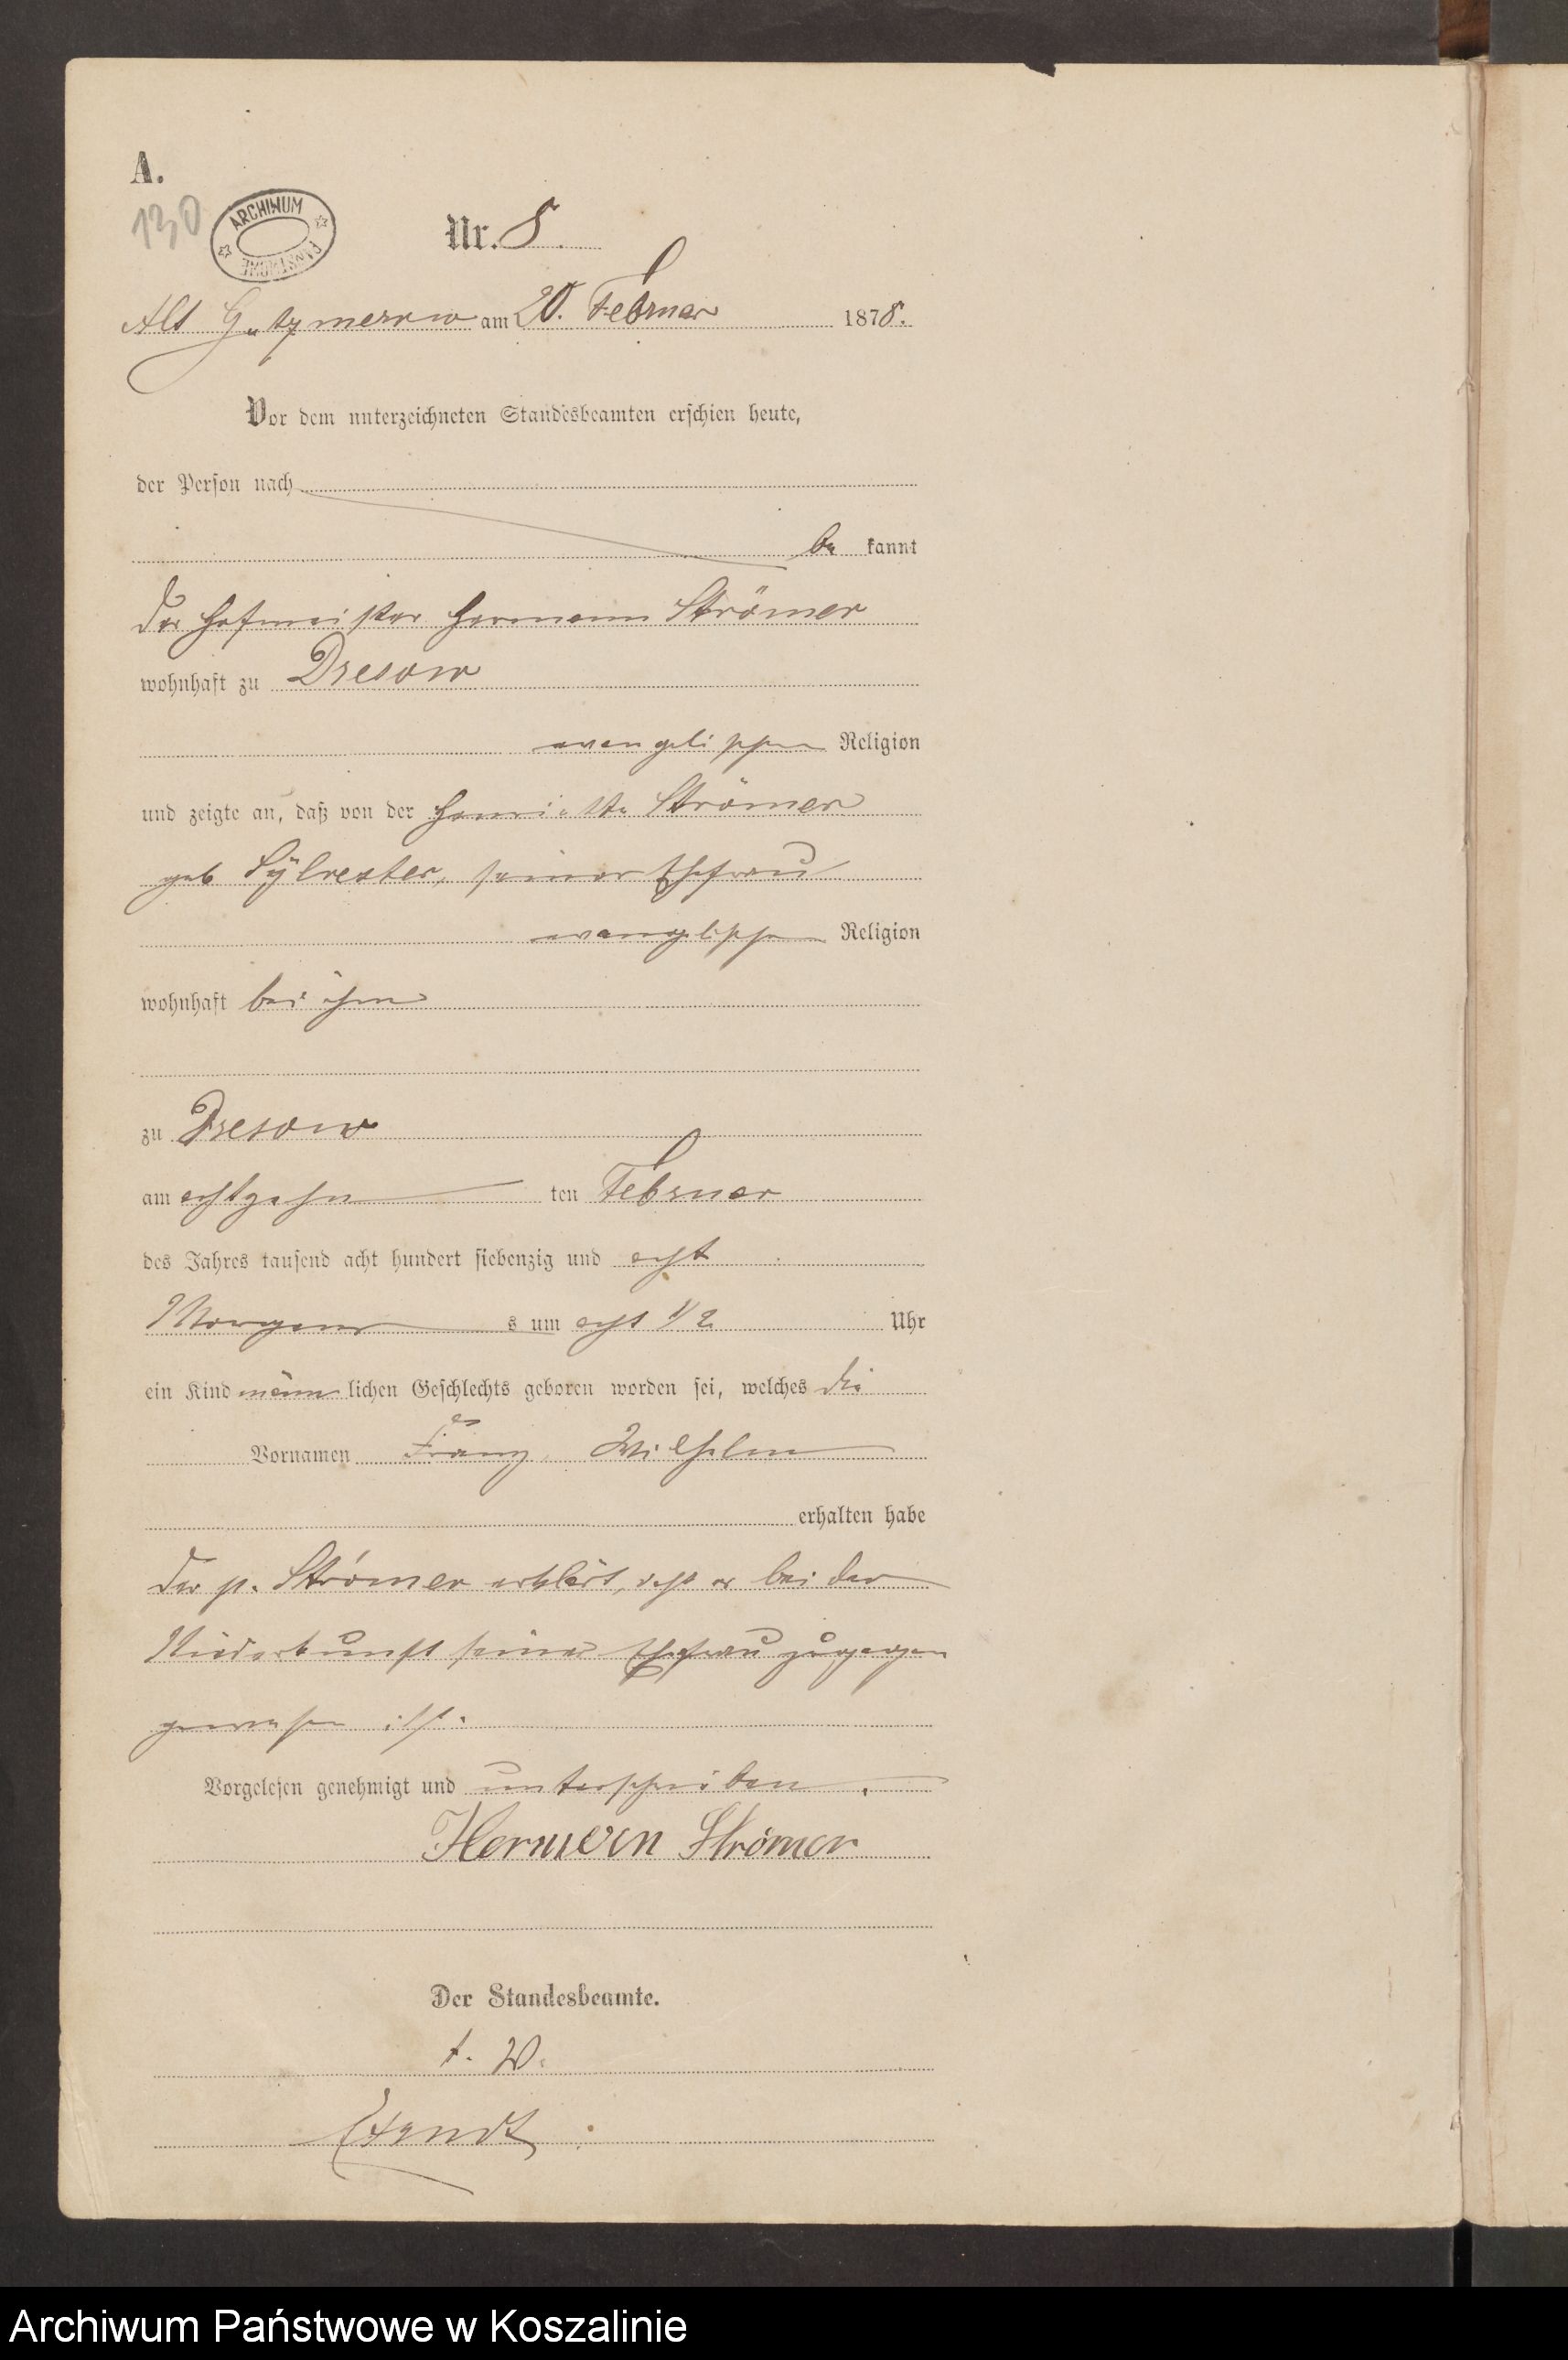 A.
130
ARCHIWUM PAŃSTWOWE
Nr. 8.
Alt Gutzmerow am 20. Februar 1878.
Vor dem unterzeichneten Standesbeamten erschien heute,
der Person nach
be kannt
der Hofmeister Hermann Strömer
wohnhaft zu Dresow
evangelischer Religion
und zeigte an, daß von der Henriette Strömer
geb Sylvester, seiner Ehefrau
evangelischer Religion
wohnhaft bei ihm
zu Dresow
am achtzehn ten Februar
des Jahres tausend acht hundert siebenzig und acht
Morgens s um acht 1/2 Uhr
ein Kind männ lichen Geschlechts geboren worden sei, welches die
Vornamen Franz, Wilhelm
erhalten habe
Der p. Strömer erklärt, daß er bei der
Niederkunft seiner Ehefrau zugegen
gewesen ist.
Vorgelesen genehmigt und unterschrieben.
Hermann Strömer
Der Standesbeamte.
Archiwum Państwowe w Koszalinie